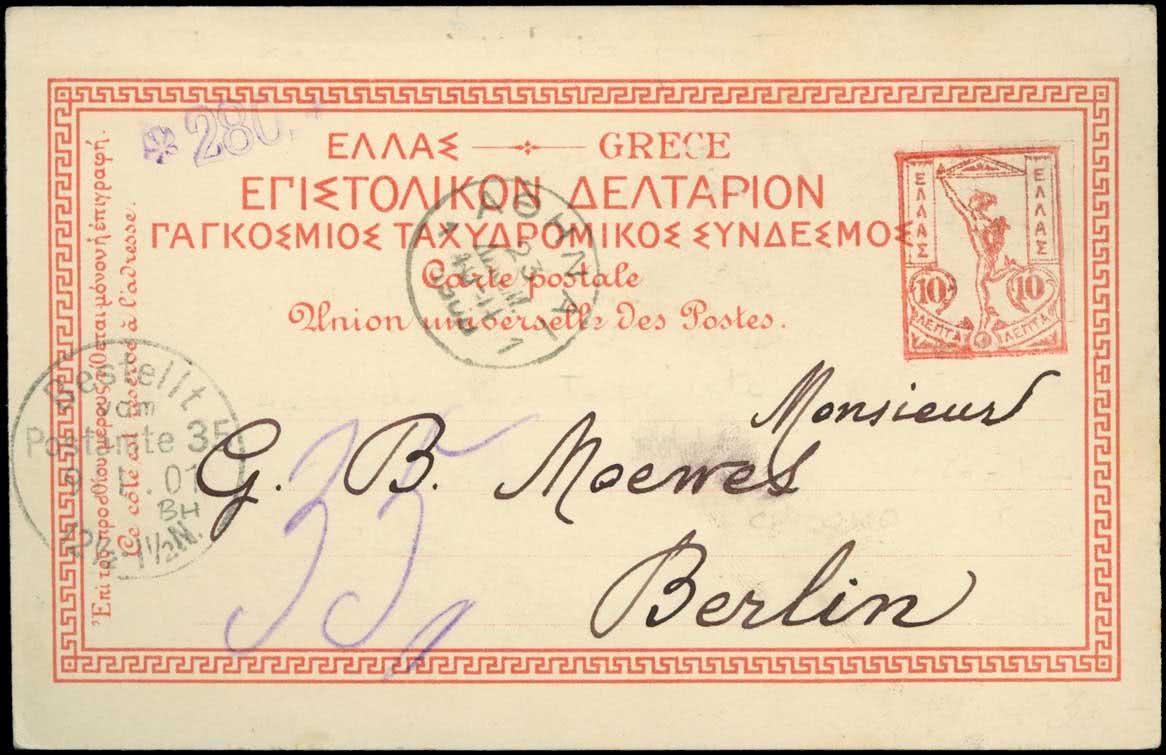 280
ΕΛΛΑΣ GRECE
ΕΠΙΣΤΟΛΙΚΟΝ ΔΕΛΤΑΡΙΟΝ
ΠΑΓΚΟΣΜΙΟΣ ΤΑΧΥΔΡΟΜΙΚΟΣ ΣΥΝΔΕΣΜΟΣ
Carte postale
Union universelle des Postes.
ΕΛΛΑΣ
ΕΛΛΑΣ
10 10
ΛΕΠΤΑ ΛΕΠΤΑ
ΑΘΗΝΑΙ
23
Bestellt
vom
Postamte 35
01
12½-1½N.
BH
Monsieur
G. B. Moewes
Berlin
Ἐπὶ τοῦ προσθίου μέρους τίθεται μόνον ἡ ἐπιγραφή.
Ce côté est réservé à l'adresse.